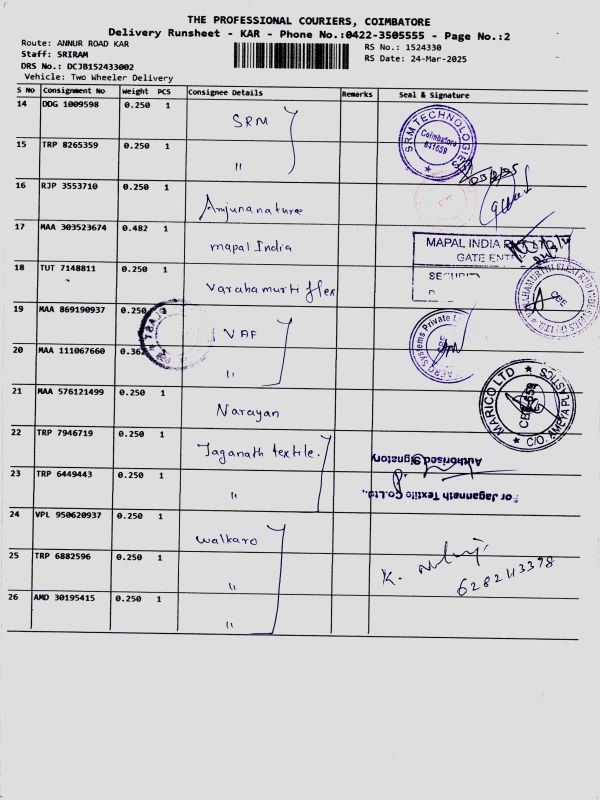 THE PROFESSIONAL COURIERS, COIMBATORE
Delivery Runsheet - KAR - Phone No.:0422-3505555 - Page No.:2
Route: ANNUR ROAD KAR
RS No.: 1524330
Staff: SRIRAM
RS Date: 24-Mar-2025
DRS No.: DCJB152433002
Vehicle: Two Wheeler Delivery
S No Consignment No Weight PCS Consignee Details Remarks Seal & Signature
14 DDG 1009598 0.250 1 SRM
SRM TECHNOLOGIES
Coimbatore
641659
15 TRP 8265359 0.250 1 "
16 RJP 3553710 0.250 1 Anjunanature
17 MAA 303523674 0.482 1 mapal India
MAPAL INDIA
GATE ENT
18 TUT 7148811 0.250 1 Varahamurti flex
SECURITY
VARAHAMURTHI FLEXI
CBE
19 MAA 869190937 0.250 VAF
AERO Systems Private
20 MAA 111067660 0.362 "
21 MAA 576121499 0.250 1 Narayan
MARICO LTD
C/O. AMEYA PLASTICS
22 TRP 7946719 0.250 1 Jaganath textile.
Authorised Signatory
23 TRP 6449443 0.250 1 "
For Jagannath Textile Co.Ltd.,
24 VPL 950620937 0.250 1 Walkaro
25 TRP 6882596 0.250 1 "
K.
6282413398
26 AMD 30195415 0.250 1 "